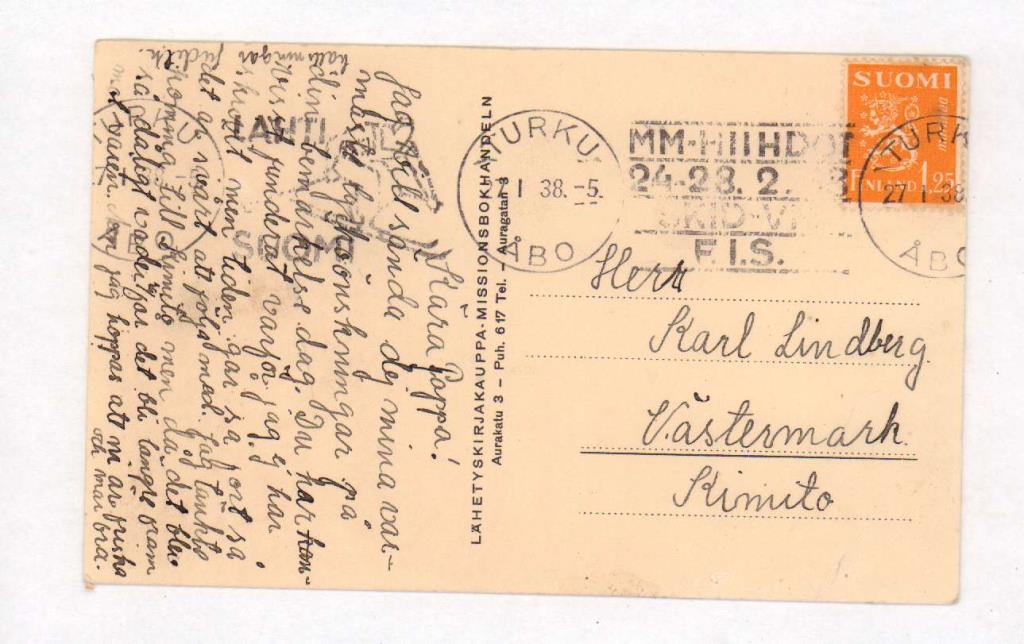 Kära Pappa!
Jag vill sända dej mina var-
maste lyckönskningar på
din bemärkelse dag. Du har
visst funderat varför jag ej har
skrivit men tiden går så fort så
det är svårt att följa med. Jag tänkte
komma till Kimito men då det blev
så dåligt väder får det bli längre fram
mot våren. jag hoppas att ni är friska
och mår bra.
hälsningar Judith.
LAHTI
SUOMI
LÄHETYSKIRJAKAUPPA-MISSIONSBOKHANDELN
Aurakatu 3 – Puh. 617 Tel. – Auragatan 3
TURKU
1 38.-5
ÅBO
MM-HIIHDOT
24-28. 2.
SKID-V
F.I.S.
SUOMI
markkaa
FINLAND 1.25
TURK
27 1 38
ÅBO
Herr
Karl Lindberg.
Västermark.
Kimito